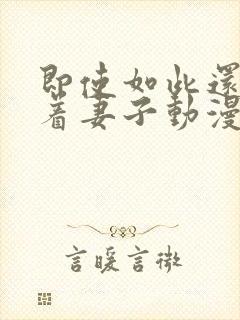 即使如此還
着妻子動漫
言暖言微